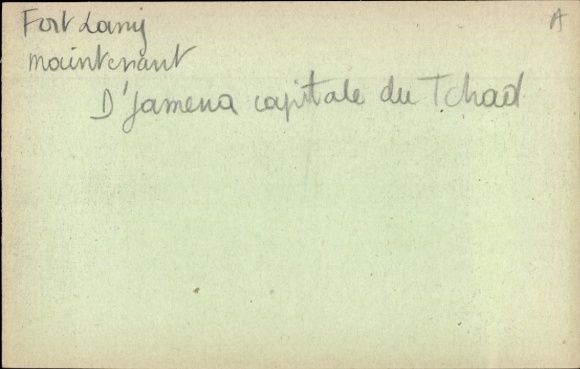 Fort Lamy
A
maintenant
D'Jamena capitale du Tchad